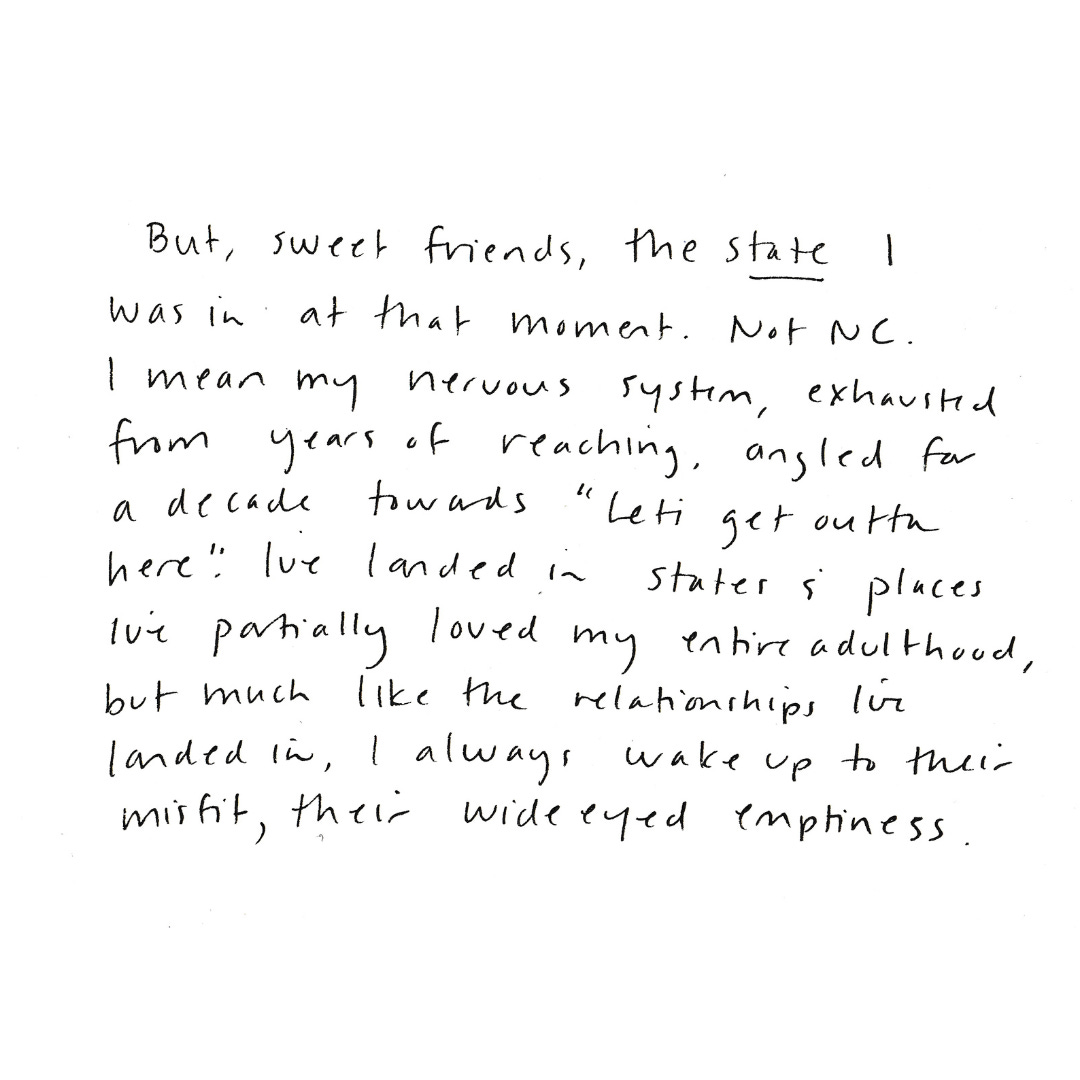 But, sweet friends, the state I
was in at that moment. Not NC.
I mean my nervous system, exhausted
from years of reaching, angled for
a decade towards "Let's get outta
here". I've landed in states & places
I've partially loved my entire adulthood,
but much like the relationships I've
landed in, I always wake up to their
misfit, their wide eyed emptiness.